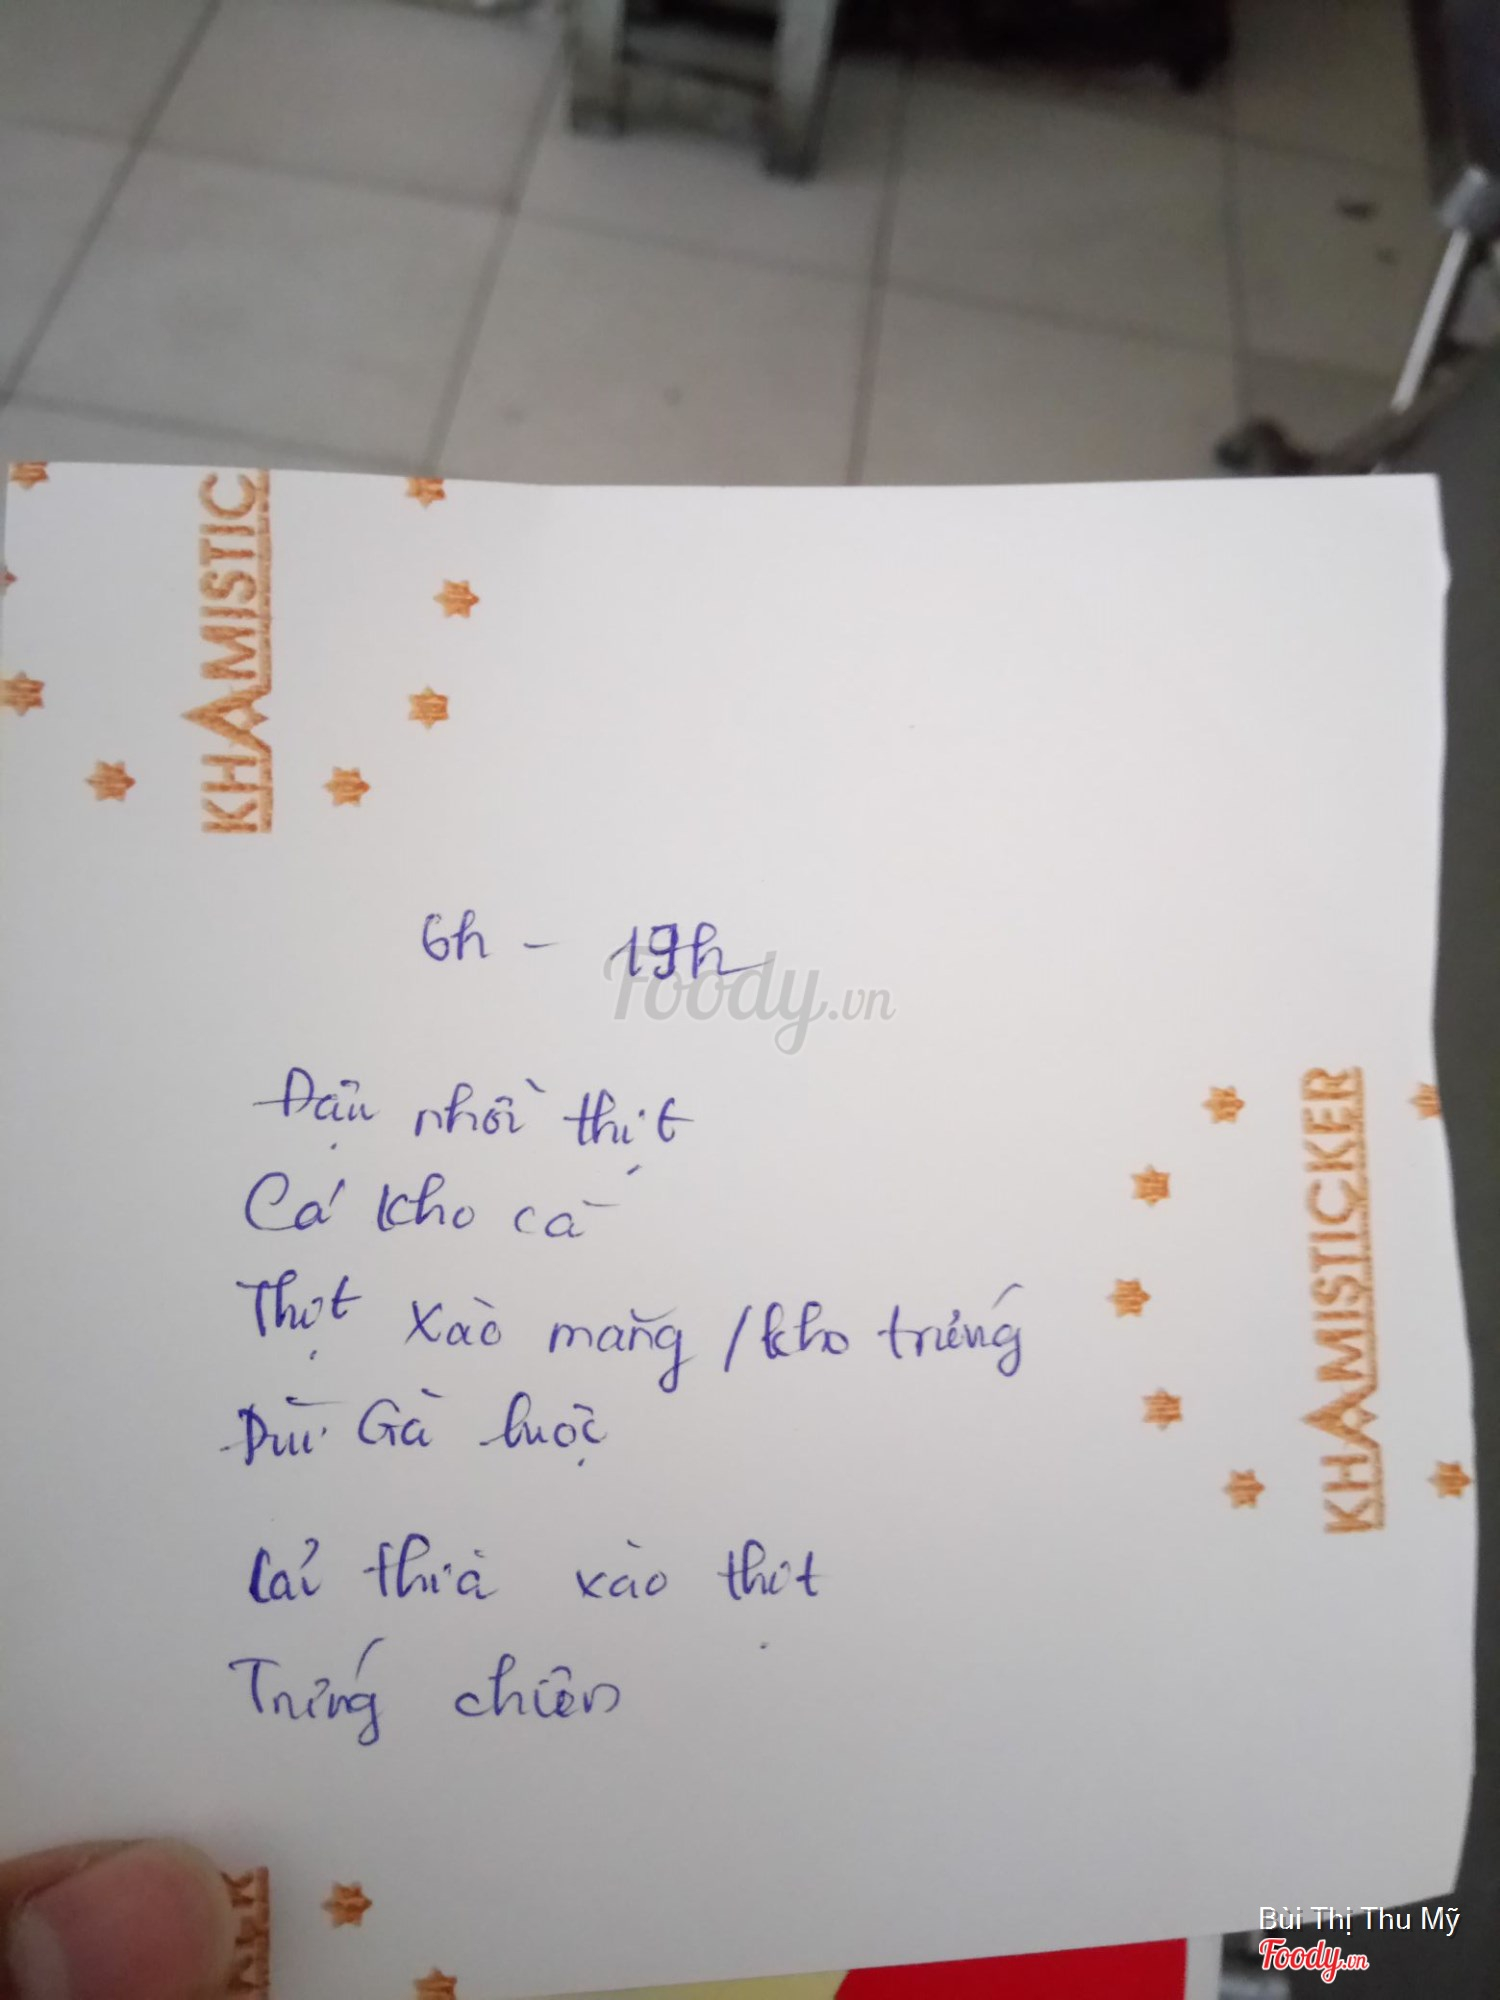 KHAMISTIC
6h - 19h
Foody.vn
Đậu nhồi thịt
Cá kho cá
Thịt xào măng / kho trứng
Đùi Gà luộc
Cải thìa xào thịt
Trứng chiên
KHAMISTICKER
Bùi Thị Thu Mỹ
Foody.vn